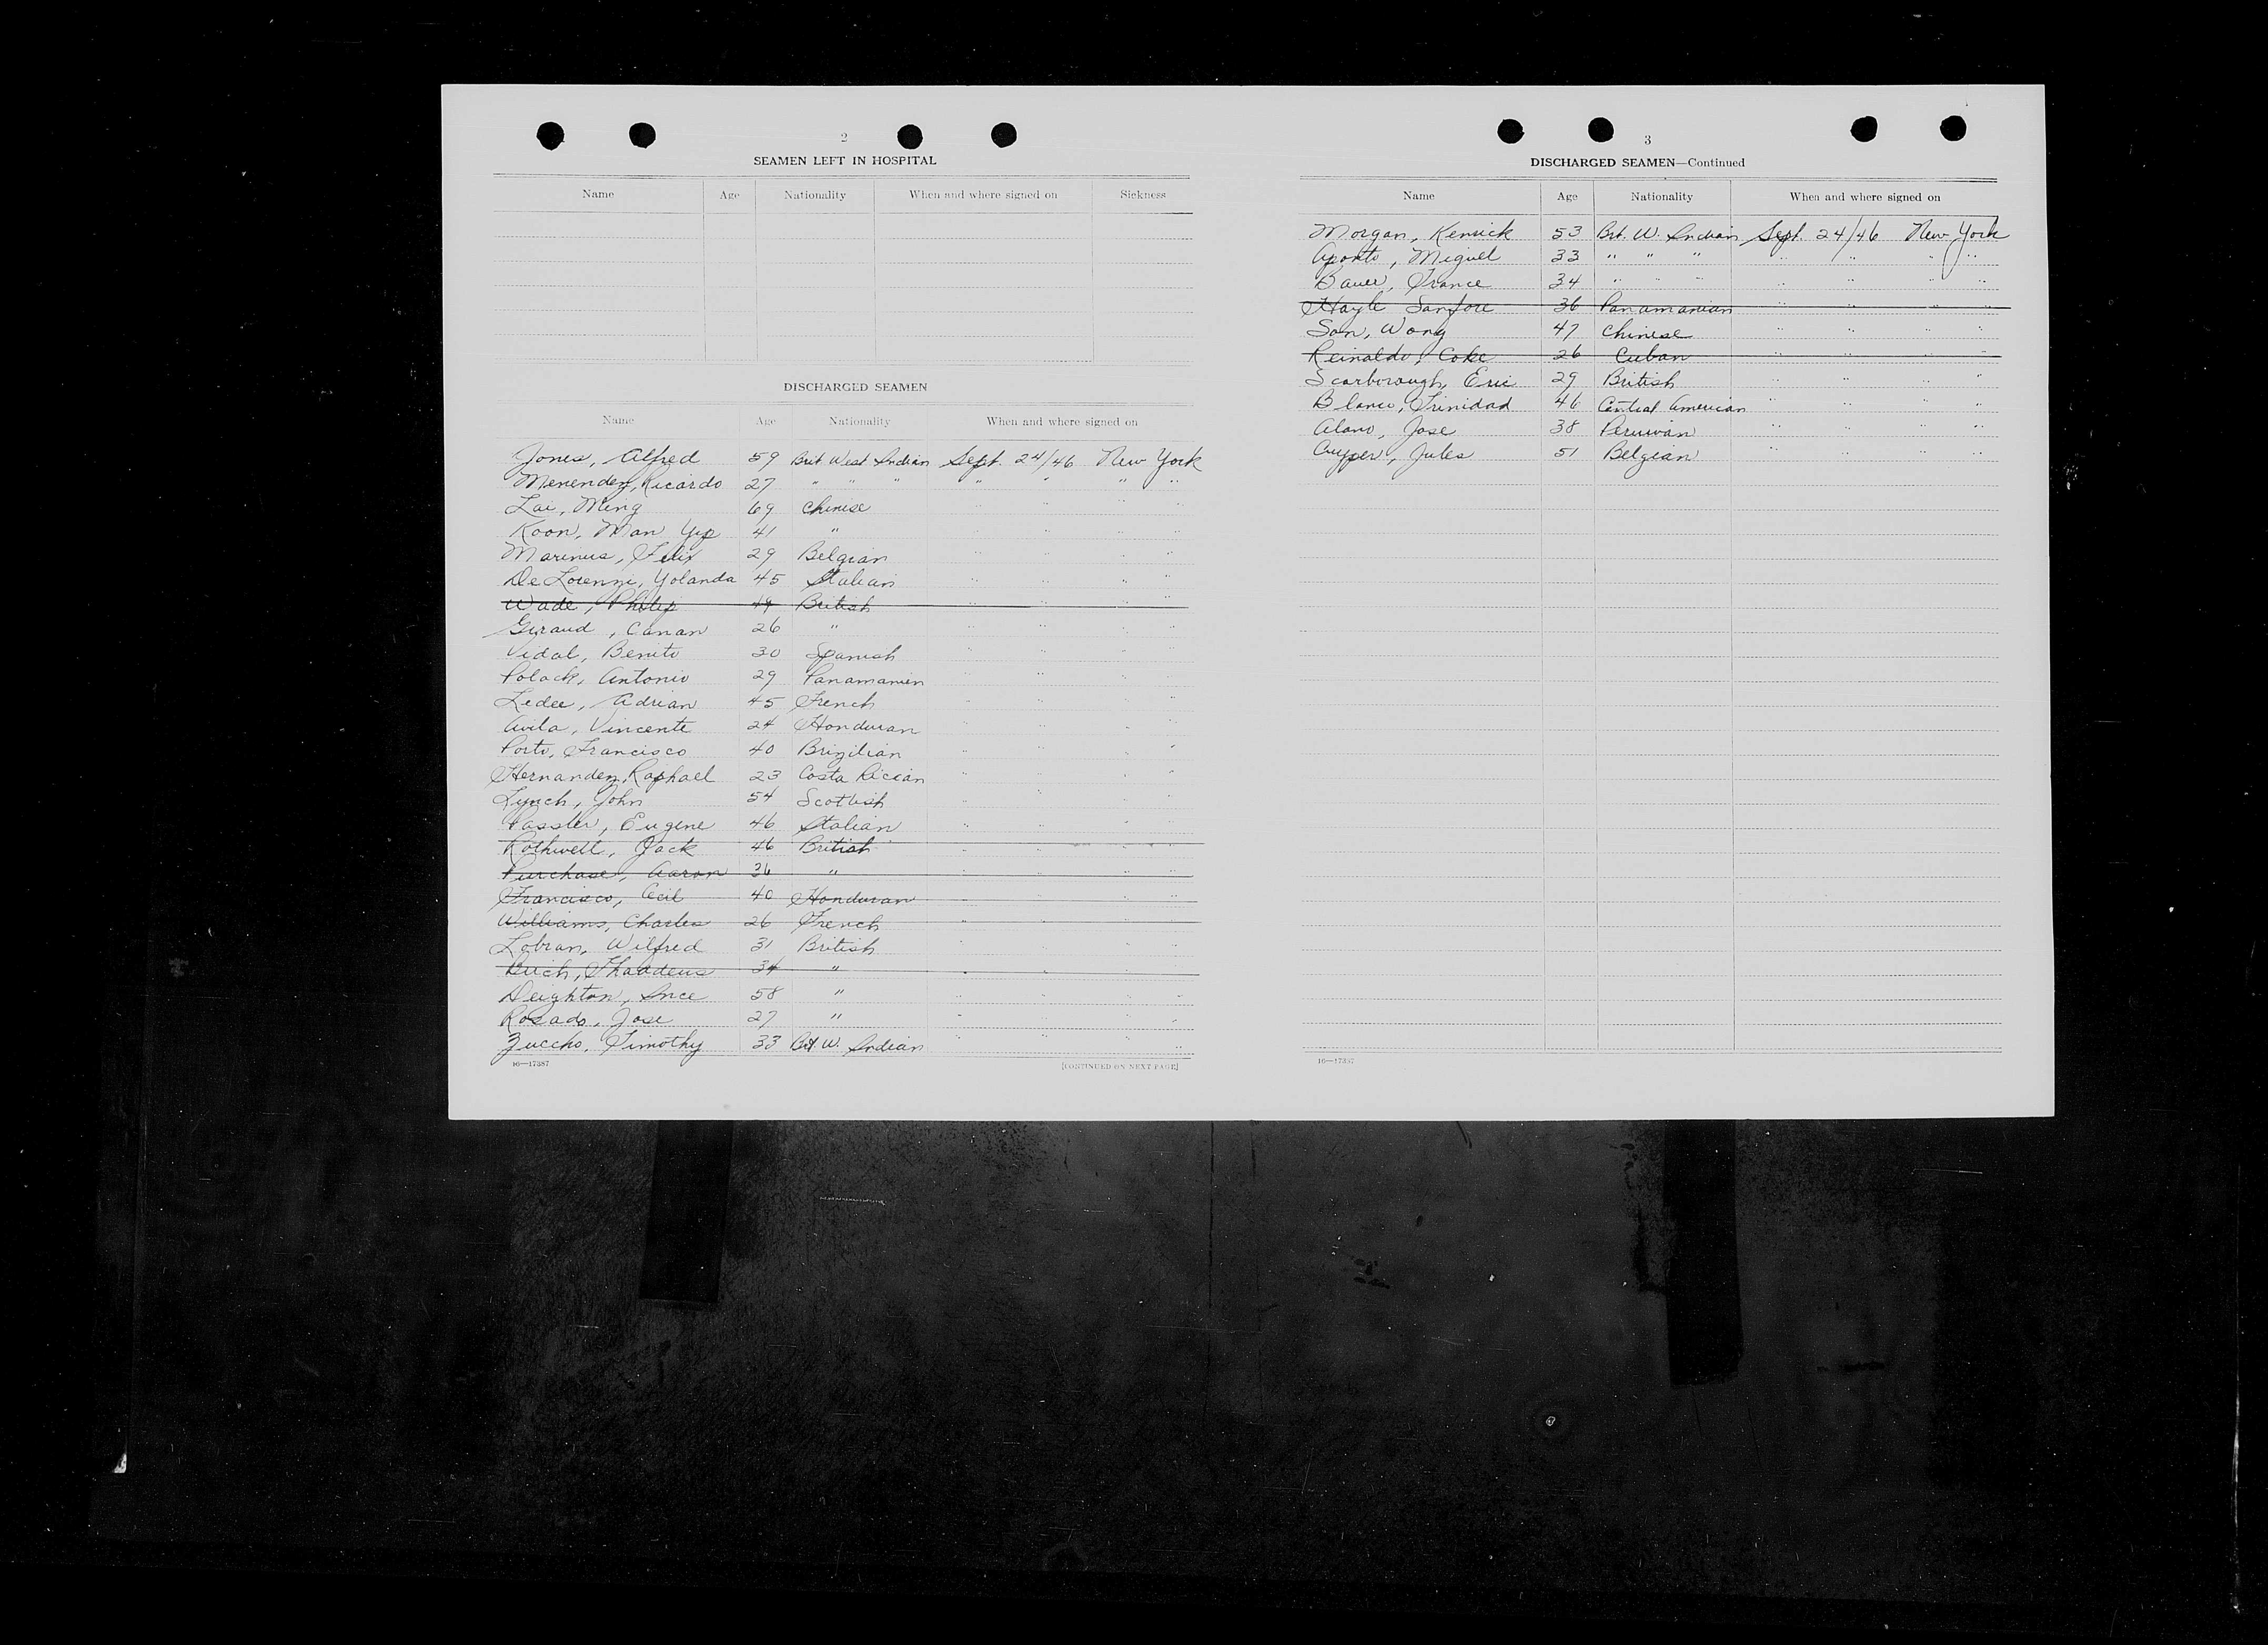 2
SEAMEN LEFT IN HOSPITAL
Name Age Nationality When and where signed on Sickness
DISCHARGED SEAMEN
Name Age Nationality When and where signed on
Jones, Alfred 59 Brit West Indian Sept. 24/46 New York
Menendez, Ricardo 27 " " " " " " "
Lai, Ming 69 Chinese " " "
Koon, Man Yip 41 " " " "
Marinus, Felix 29 Belgian " " " "
De Lorenzi, Yolanda 45 Italian " " " "
Wade, Philip 49 British " " " "
Giraud, Canan 26 " " " " "
Vidal, Benito 30 Spanish " " " "
Polack, Antonio 29 Panamanien " " " "
Ledee, Adrian 45 French " " " "
Avila, Vincente 24 Honduran " " " "
Porto, Francisco 40 Brizilian " " " "
Hernandez, Raphael 23 Costa Rician " " " "
Lynch, John 54 Scottish " " " "
Passler, Eugene 46 Italian " " " "
Rothwell, Jack 46 British " " " "
Purchase, Aaron 36 " " " " "
Francisco, Cecil 40 Honduran " " " "
Williams, Charles 26 French " " " "
Lobran, Wilfred 31 British " " " "
Birch, Thaddeus 34 " " " " "
Deighton, Ince 58 " " " " "
Rosado, Jose 27 " " " " "
Zuccho, Timothy 33 Brt. W. Indian " " " "
16—17387 [CONTINUED ON NEXT PAGE]
3
DISCHARGED SEAMEN—Continued
Name Age Nationality When and where signed on
Morgan, Kenrick 53 Brt. W. Indian Sept. 24/46 New York
Aponte, Miguel 33 " " " " " " "
Bauer, France 34 " " " " " " "
Hayle Sanfore 36 Panamanian " " " "
Son, Wong 47 Chinese " " " "
Reinaldo, Coke 26 Cuban " " " "
Scarborough, Eric 29 British " " "
Blanco, Trinidad 46 Central American " " " "
Alano, Jose 38 Peruvian " " " "
Cuyper, Jules 51 Belgian " " " "
16—17387